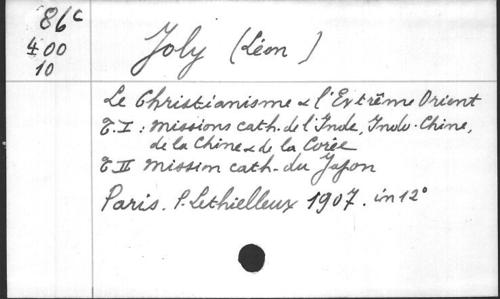 86c
400
10
Joly (Léon)
Le Christianisme & l'Extrême Orient
T. I : Missions cath. de l'Inde, Indo-Chine,
de la Chine & de la Corée
T II Mission cath. du Japon
Paris. P. Lethielleux 1907. in 12°